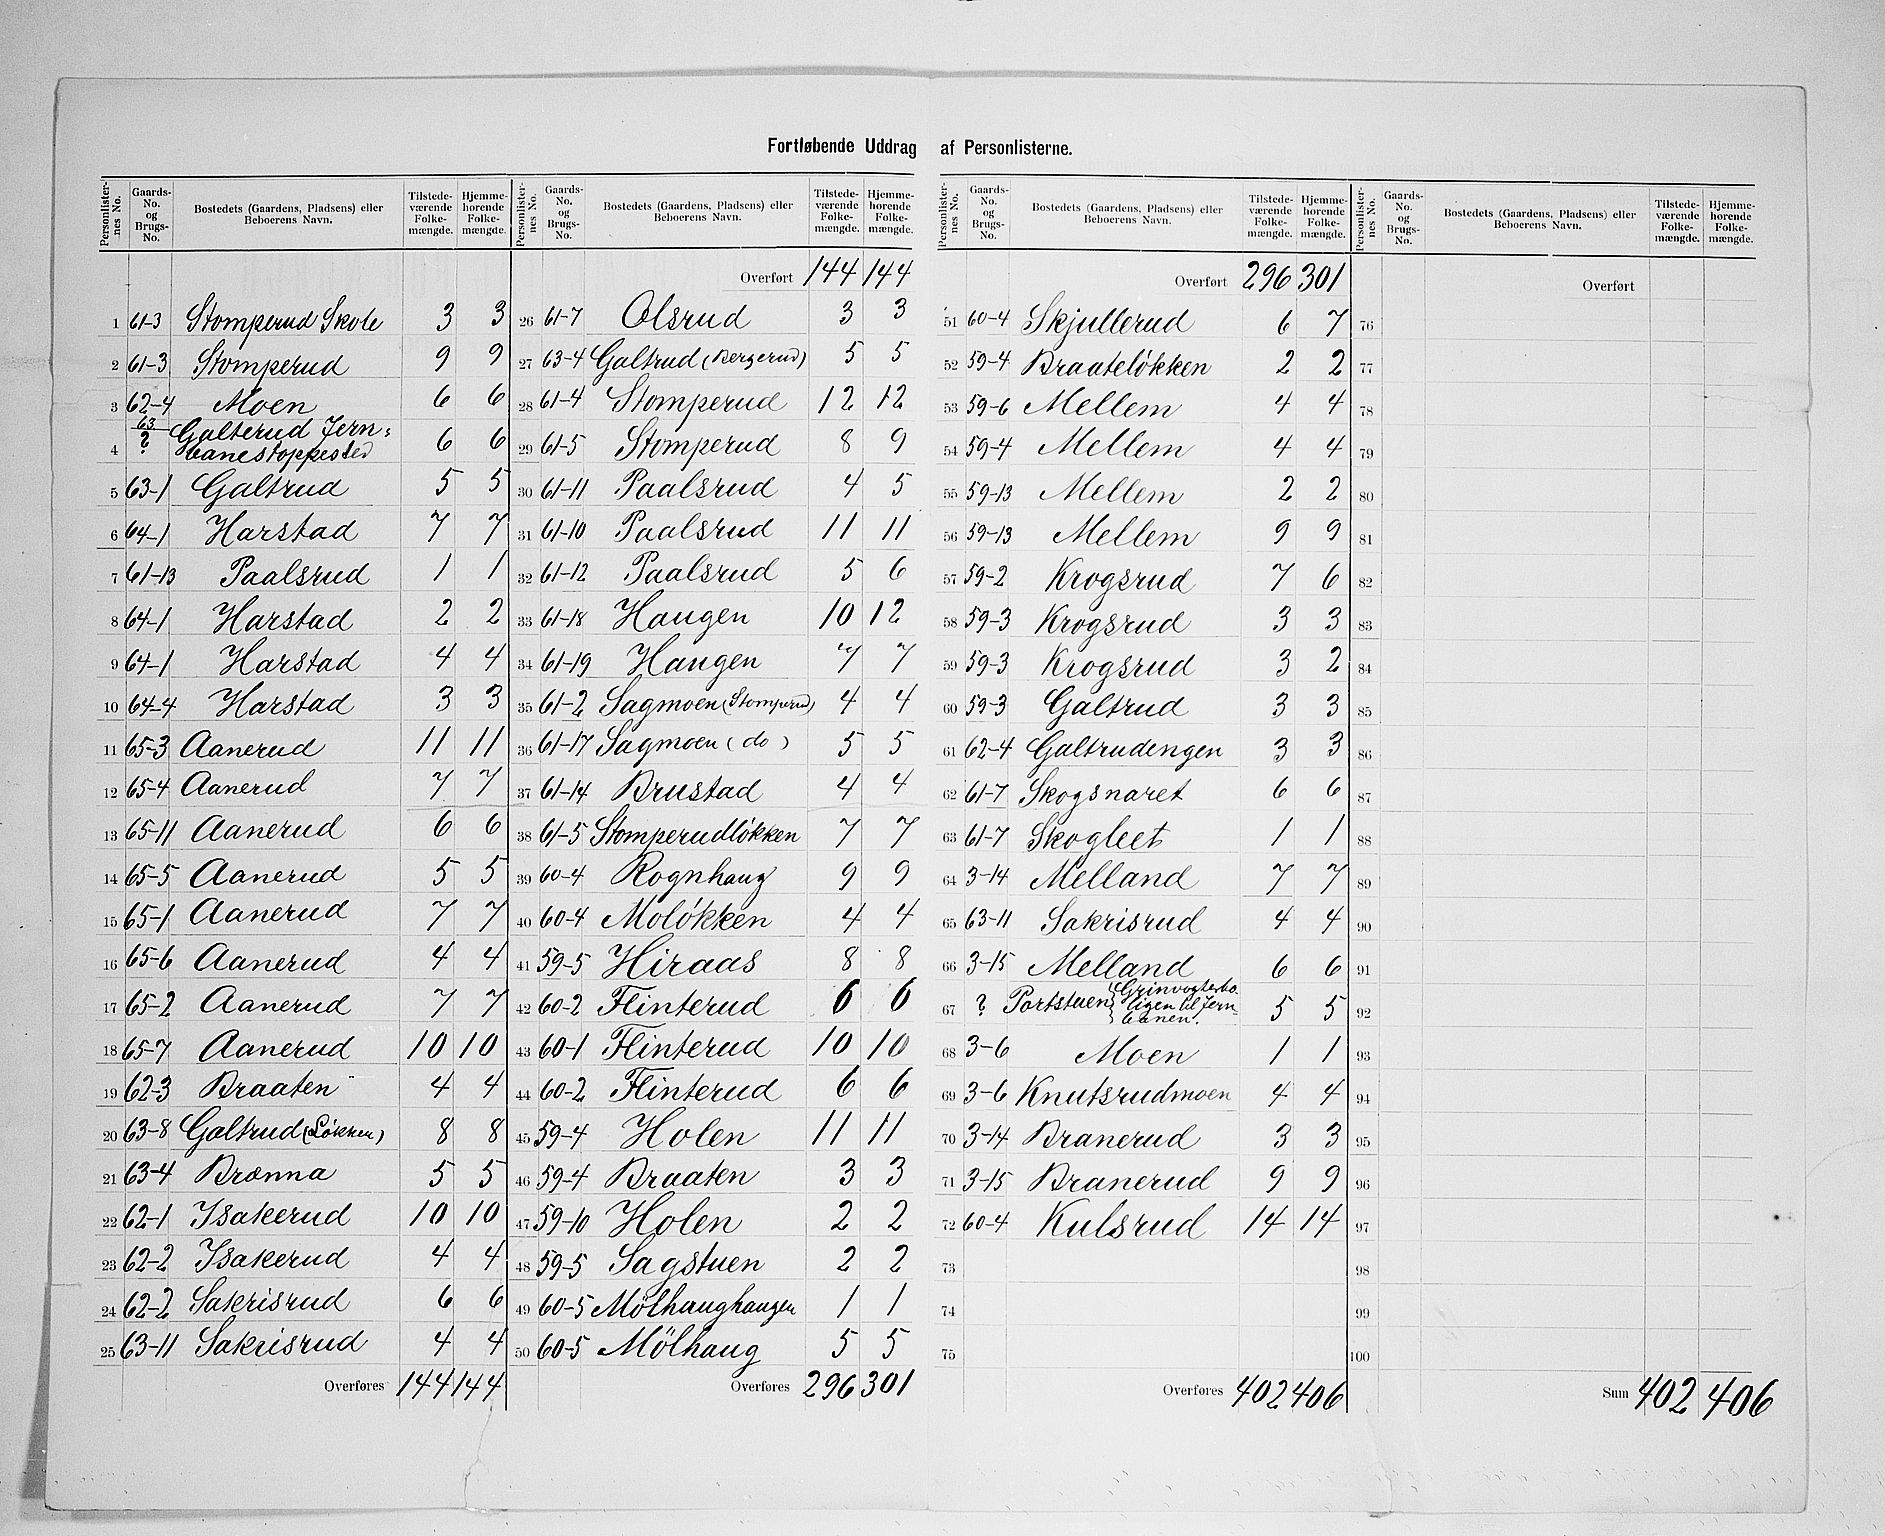 Fortløbende Uddrag af Personlisterne.
Personlister-nes No. Gaards-No. og Brugs-No. Bostedets (Gaardens, Pladsens) eller Beboerens Navn. Tilstede-værende Folke-mængde. Hjemme-hørende Folke-mængde.
1 61-3 Stomperud Skole 3 3
2 61-3 Stomperud 9 9
3 62-4 Moen 6 6
4 63 ? Galterud Jern-
banestoppested 6 6
5 63-1 Galtrud 5 5
6 64-1 Harstad 7 7
7 61-13 Paalsrud 1 1
8 64-1 Harstad 2 2
9 64-1 Harstad 4 4
10 64-4 Harstad 3 3
11 65-3 Aanerud 11 11
12 65-4 Aanerud 7 7
13 65-11 Aanerud 6 6
14 65-5 Aanerud 5 5
15 65-1 Aanerud 7 7
16 65-6 Aanerud 4 4
17 65-2 Aanerud 7 7
18 65-7 Aanerud 10 10
19 62-3 Braaten 4 4
20 63-8 Galtrud (Løkken) 8 8
21 63-4 Brænna 5 5
22 62-1 Isakerud 10 10
23 62-2 Isakerud 4 4
24 62-2 Sakrisrud 6 6
25 63-11 Sakrisrud 4 4
Overføres 144 144
Personlister-nes No. Gaards-No. og Brugs-No. Bostedets (Gaardens, Pladsens) eller Beboerens Navn. Tilstede-værende Folke-mængde. Hjemme-hørende Folke-mængde.
Overført 144 144
26 61-7 Olsrud 3 3
27 63-4 Galtrud (Bergerud) 5 5
28 61-4 Stomperud 12 12
29 61-5 Stomperud 8 9
30 61-11 Paalsrud 4 5
31 61-10 Paalsrud 11 11
32 61-12 Paalsrud 5 6
33 61-18 Haugen 10 12
34 61-19 Haugen 7 7
35 61-2 Sagmoen (Stomperud) 4 4
36 61-17 Sagmoen (do) 5 5
37 61-14 Brustad 4 4
38 61-5 Stomperudløkken 7 7
39 60-4 Rognhaug 9 9
40 60-4 Moløkken 4 4
41 59-5 Hiraas 8 8
42 60-2 Flinterud 6 6
43 60-1 Flinterud 10 10
44 60-2 Flinterud 6 6
45 59-4 Holen 11 11
46 59-4 Braaten 3 3
47 59-10 Holen 2 2
48 59-5 Sagstuen 2 2
49 60-5 Mölhaughaugen 1 1
50 60-5 Mölhaug 5 5
Overføres 296 301
Personlister-nes No. Gaards-No. og Brugs-No. Bostedets (Gaardens, Pladsens) eller Beboerens Navn. Tilstede-værende Folke-mængde. Hjemme-hørende Folke-mængde.
Overført 296 301
51 60-4 Skjullerud 6 7
52 59-4 Braateløkken 2 2
53 59-6 Mellem 4 4
54 59-4 Mellem 4 4
55 59-13 Mellem 2 2
56 59-13 Mellem 9 9
57 59-2 Krogsrud 7 6
58 59-3 Krogsrud 3 3
59 59-3 Krogsrud 3 2
60 59-3 Galtrud 3 3
61 62-4 Galtrudengen 3 3
62 61-7 Skogsnaret 6 6
63 61-7 Skogleet 1 1
64 3-14 Melland 7 7
65 63-11 Sakrisrud 4 4
66 3-15 Melland 6 6
67 ? Portstuen Grinvogterbo-
ligen til Jern-
banen. 5 5
68 3-6 Moen 1 1
69 3-6 Knutsrudmoen 4 4
70 3-14 Branerud 3 3
71 3-15 Branerud 9 9
72 60-4 Kulsrud 14 14
73
74
75
Overføres 402 406
Personlister-nes No. Gaards-No. og Brugs-No. Bostedets (Gaardens, Pladsens) eller Beboerens Navn. Tilstede-værende Folke-mængde. Hjemme-hørende Folke-mængde.
Overført
76
77
78
79
80
81
82
83
84
85
86
87
88
89
90
91
92
93
94
95
96
97
98
99
100
Sum 402 406